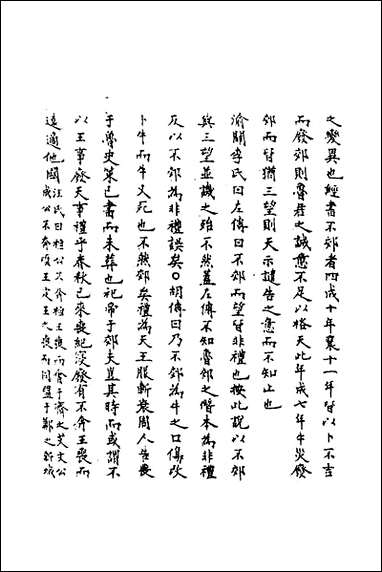 之變異也經書不郊者四成十年襄十一年皆以卜不吉
而廢郊則魯君之誠意不足以格天此年成七年牛災廢
郊而皆猶三望則天示譴告之意而不知止也
渝關李氏曰左傳曰不郊而望皆非禮也按此說以不郊
與三望並譏之殆不然蓋左傳不知魯郊之僭本為非禮
反以不郊為非禮誤矣〇胡傳曰乃不郊為牛之口傷改
卜牛而牛又死也不然郊矣禮為天王服斬衰周人告喪
于魯史策已書而未葬也祀帝于郊夫豈其時而或謂不
以王事廢天事禮乎春秋已來喪紀寖廢有不奔王喪而
遠適他國汪氏曰桓公不奔桓王喪而會于齊之艾文公
成公不奔頃王定王之喪而同盟于鄭之新城